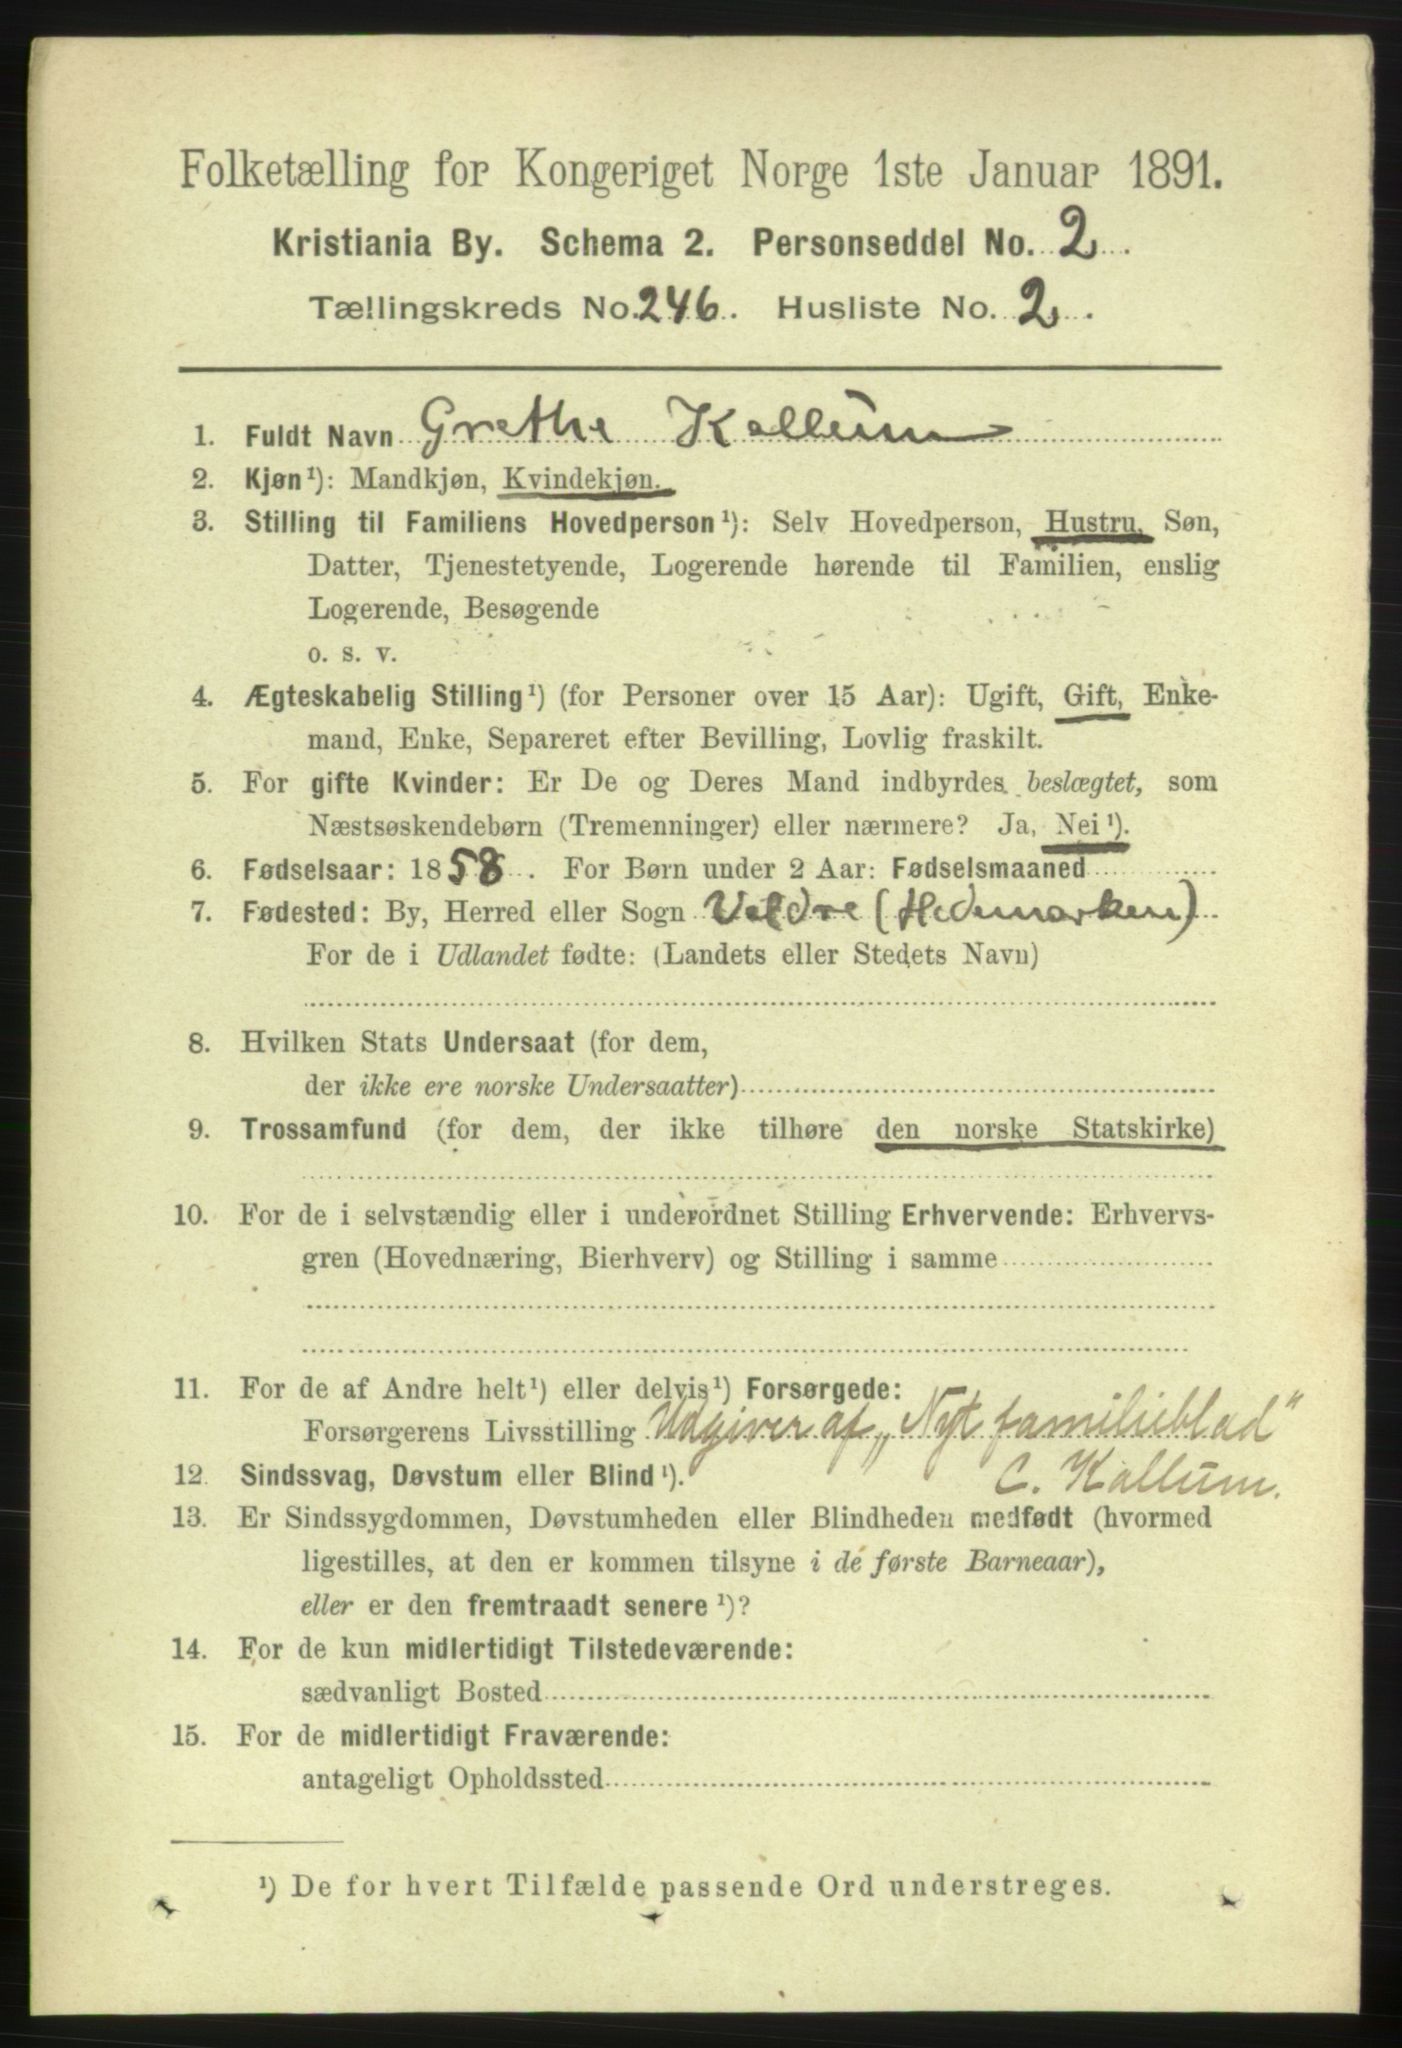 Folketælling for Kongeriget Norge 1ste Januar 1891.
Kristiania By. Schema 2. Personseddel No. 2.
Tællingskreds No. 246. Husliste No. 2.
1. Fuldt Navn Grethe Kallum
2. Kjøn¹): Mandkjøn, Kvindekjøn.
3. Stilling til Familiens Hovedperson¹): Selv Hovedperson, Hustru, Søn,
Datter, Tjenestetyende, Logerende hørende til Familien, enslig
Logerende, Besøgende
o. s. v.
4. Ægteskabelig Stilling¹) (for Personer over 15 Aar): Ugift, Gift, Enke-
mand, Enke, Separeret efter Bevilling, Lovlig fraskilt.
5. For gifte Kvinder: Er De og Deres Mand indbyrdes beslægtet, som
Næstsøskendebørn (Tremenninger) eller nærmere? Ja, Nei¹).
6. Fødselsaar: 1858. For Børn under 2 Aar: Fødselsmaaned
7. Fødested: By, Herred eller Sogn Veldre (Hedemarken)
For de i Udlandet fødte: (Landets eller Stedets Navn)
8. Hvilken Stats Undersaat (for dem,
der ikke ere norske Undersaatter)
9. Trossamfund (for dem, der ikke tilhøre den norske Statskirke)
10. For de i selvstændig eller i underordnet Stilling Erhvervende: Erhvervs-
gren (Hovednæring, Bierhverv) og Stilling i samme
11. For de af Andre helt¹) eller delvis¹) Forsørgede:
Forsørgerens Livsstilling Udgiver af „Nyt familieblad"
C. Kallum.
12. Sindssvag, Døvstum eller Blind¹).
13. Er Sindssygdommen, Døvstumheden eller Blindheden medfødt (hvormed
ligestilles, at den er kommen tilsyne i de første Barneaar),
eller er den fremtraadt senere¹)?
14. For de kun midlertidigt Tilstedeværende:
sædvanligt Bosted
15. For de midlertidigt Fraværende:
antageligt Opholdssted
¹) De for hvert Tilfælde passende Ord understreges.